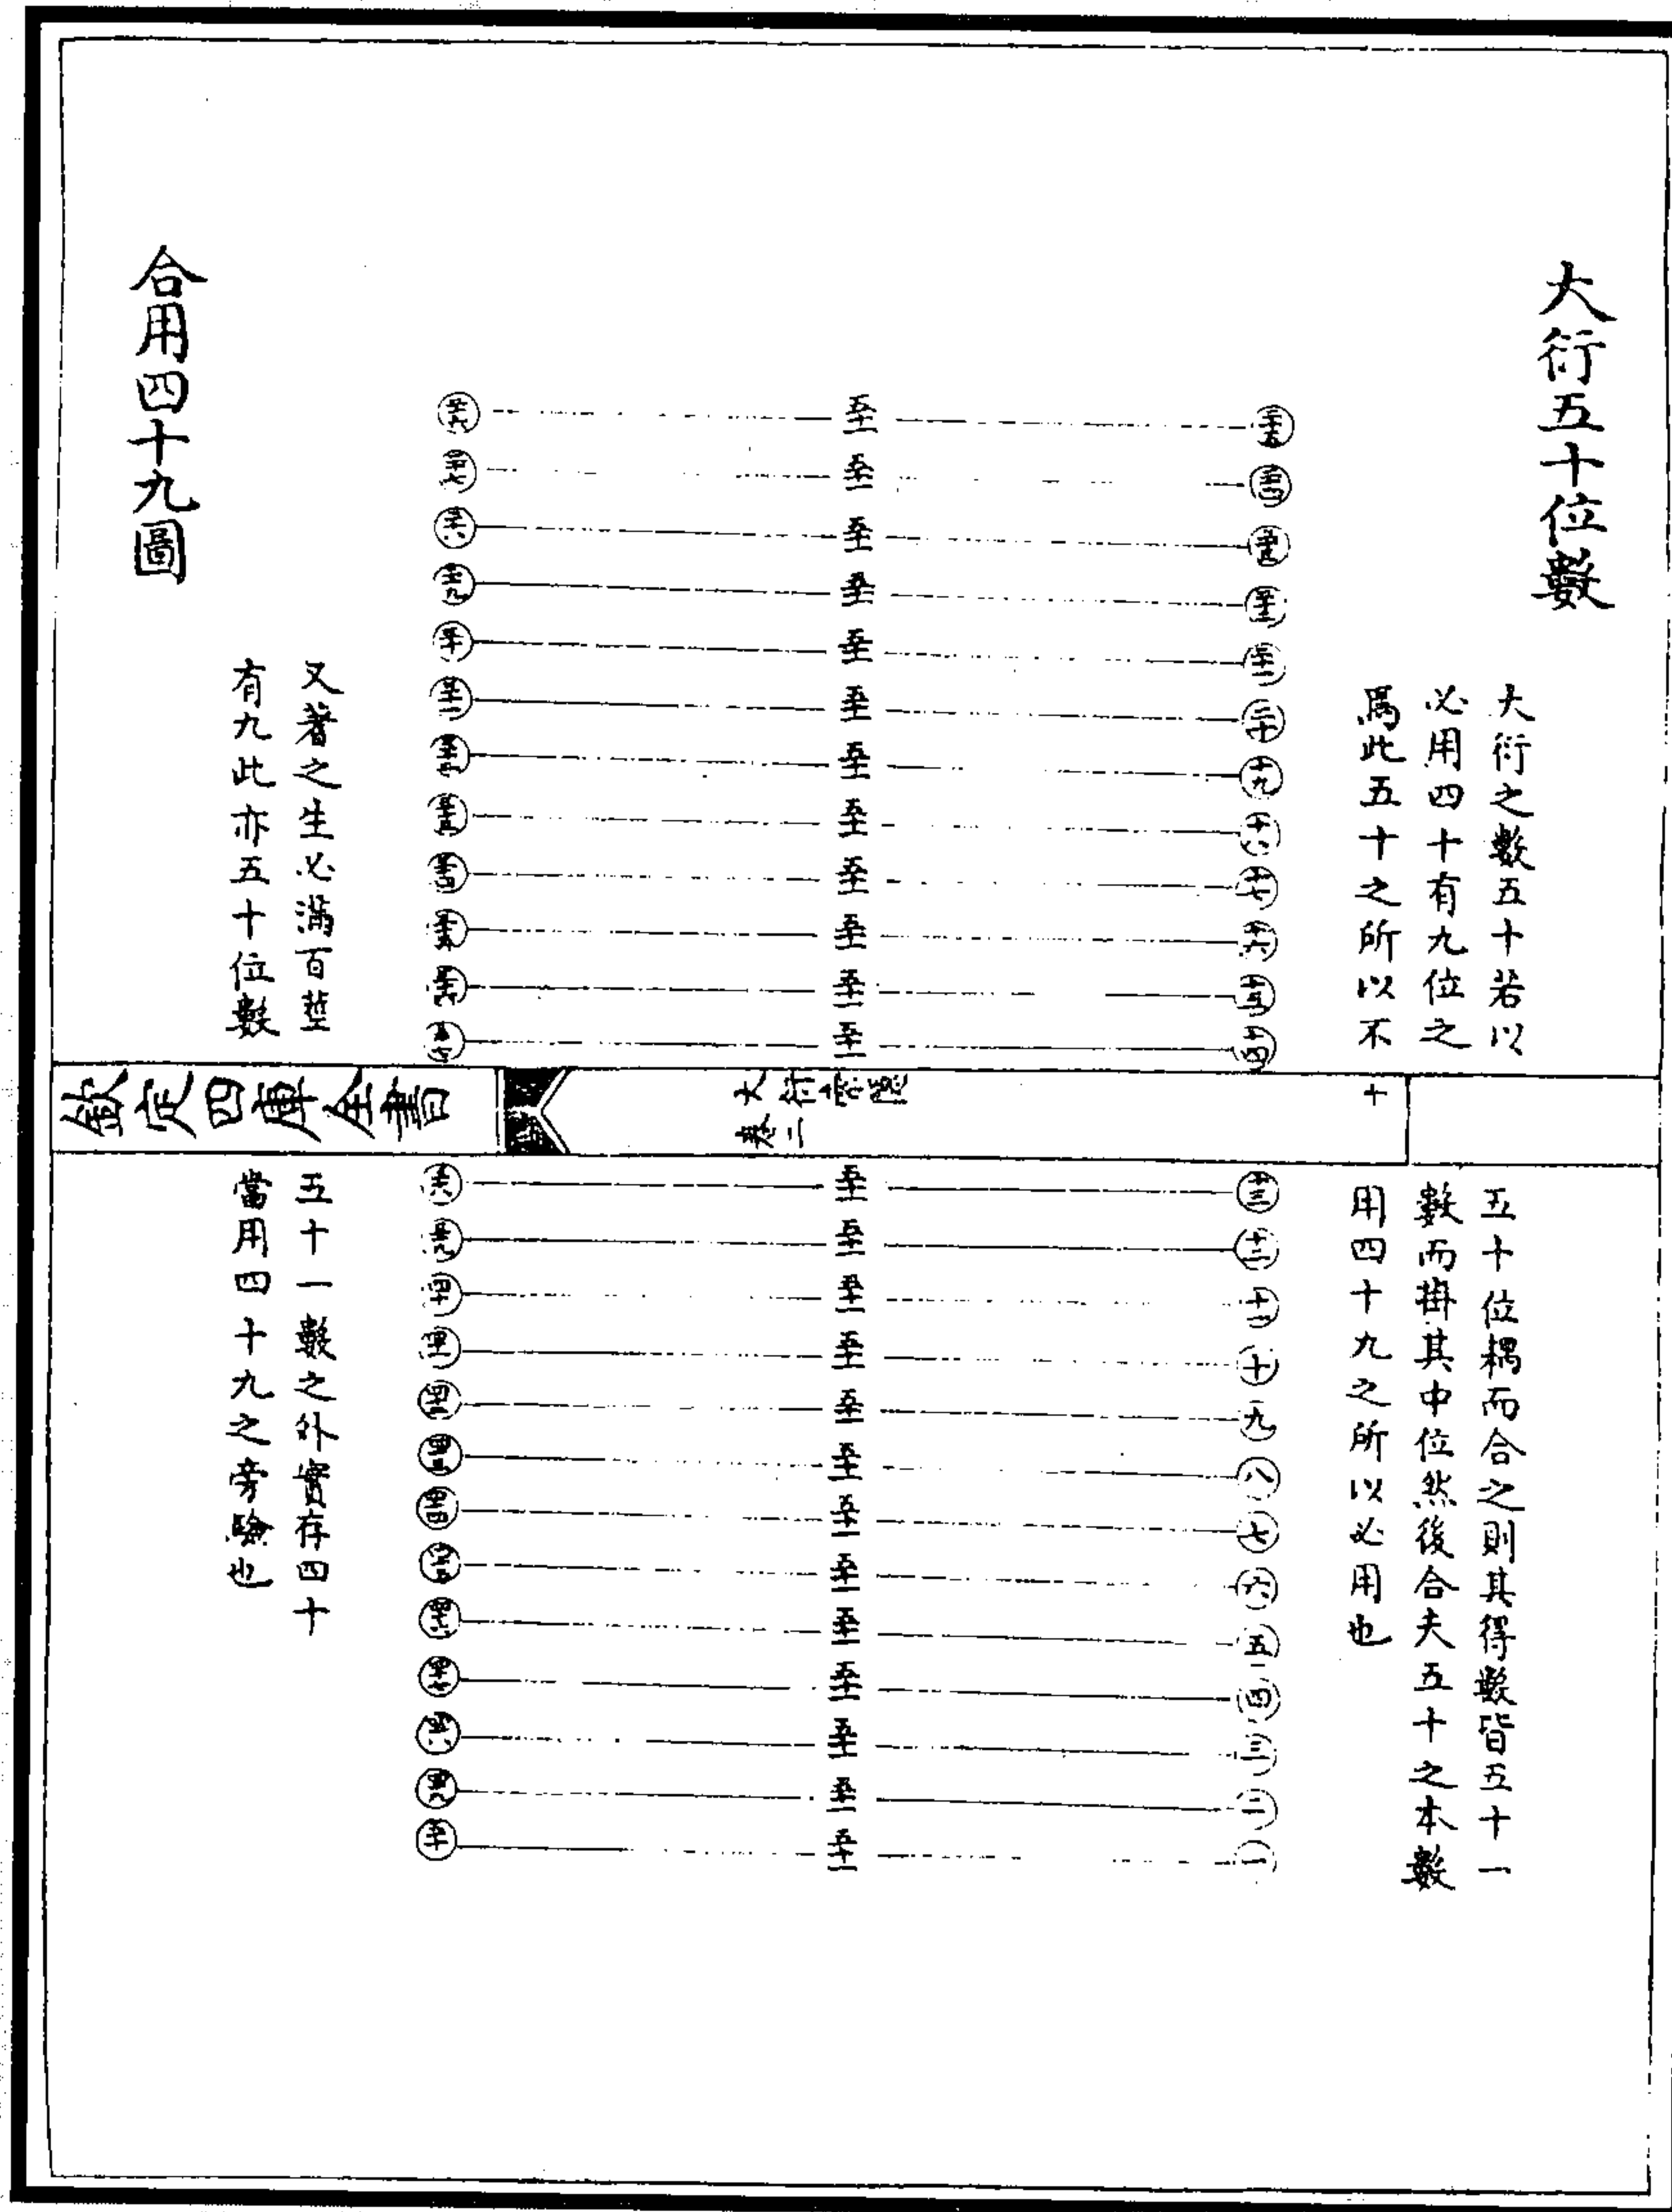 大衍五十位數
大衍之數五十若以五十位耦而合之則其得數皆五十一
必用四十有九位之數而掛其中位然後合夫五十之本數
爲此五十之所以不用四十九之所以必用也
二十五 五十一 二十六
二十四 五十一 二十七
二十三 五十一 二十八
二十二 五十一 二十九
二十一 五十一 三十
二十 五十一 三十一
十九 五十一 三十二
十八 五十一 三十三
十七 五十一 三十四
十六 五十一 三十五
十五 五十一 三十六
十四 五十一 三十七
十三 五十一 三十八
十二 五十一 三十九
十一 五十一 四十
十 五十一 四十一
九 五十一 四十二
八 五十一 四十三
七 五十一 四十四
六 五十一 四十五
五 五十一 四十六
四 五十一 四十七
三 五十一 四十八
二 五十一 四十九
一 五十一 五十
又蓍之生必滿百莖五十一數之外實存四十
有九此亦五十位數當用四十九之旁驗也
合用四十九圖
欽定四庫全書
大衍索隱
卷二
十